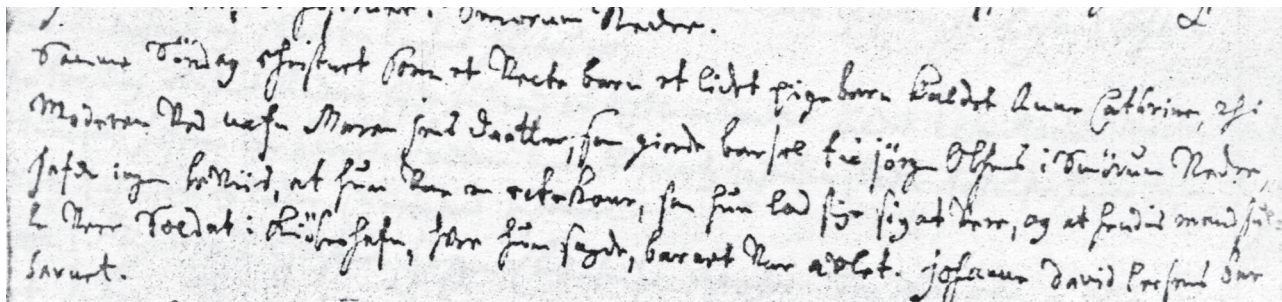 Smørum Nedre.
Samme Söndag Christnet som et Uecte barn et lidet pigebarn kaldet Anne Cathrine, thi
Moderen Ved nafn Maren Jens daatter, som giorde barsel til Jörgen Olsens i Smörum Nedre,
hafde ingen beviis, at hun Var en ectekone, som hun lod sige sig at Vere, og at hendis mand sku¬
le Vere Soldat i Kiöbenhafn, hvor hun sagde, barnet Var avlet. Johanne David Leesens bar
barnet.